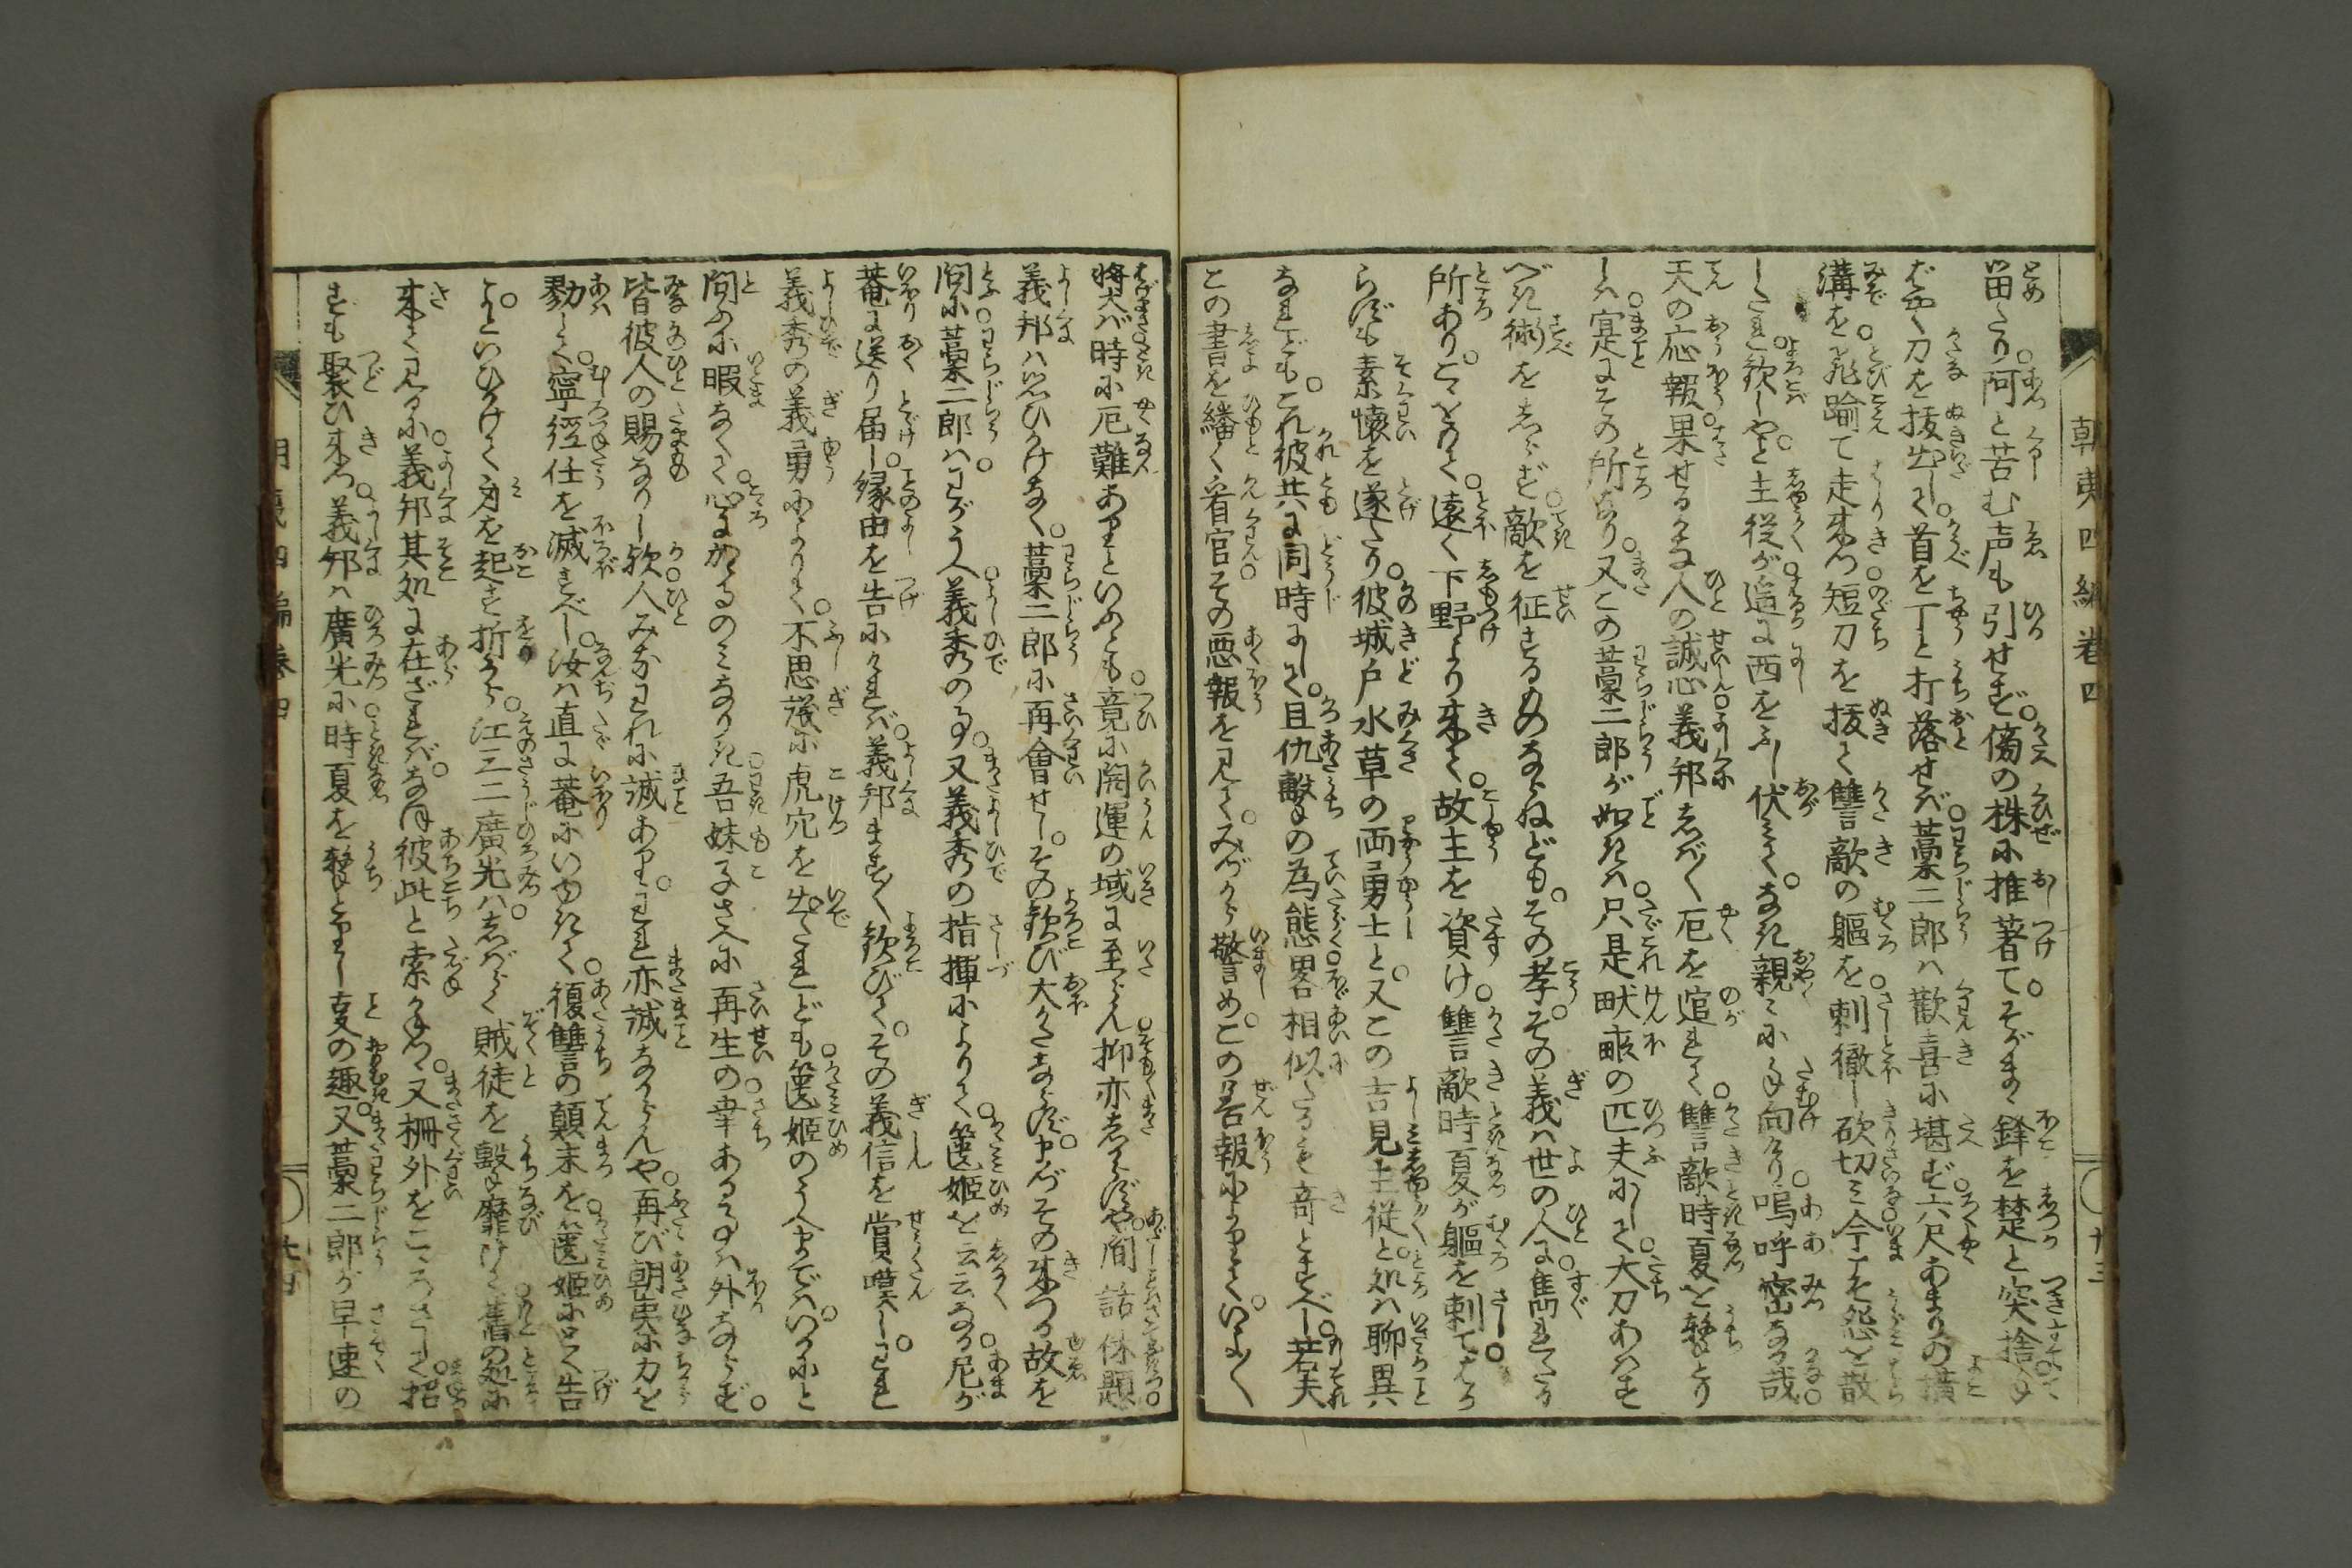 朝夷四編巻四
留たり。阿と苦む声も引せず。傍の株に推著て。そがまゝ鋒を楚と突捨て
ばやく刀を抜出して。首を丁と打落せば。藁二郎は歓喜に堪ず。六尺あまりの横
溝を。飛踰て走来つ。短刀を抜て讐敵の躯を。刺徹し砍切み。今こそ怨を散
したれ。歓しやと主従が。遥に西をふし伏みて。なき親々に手向けり。嗚呼宻なる哉
天の応報。果せるかな人の誠心。義邦しば〳〵厄を逭れて。讐敵時夏を撃とり
しは。寔にその所なり。又この藁二郎が如きは。只是畎畝の匹夫にして。大刀あはす
べき術をしらず。敵を征するものならねども。その孝。その義は世の人に。雋れたる
所あり。こゝをもて。遠く下野より来て。故主を資け。讐敵時夏が躯を刺て。はか
らずも素懐を遂たり。彼城戸水草の両勇士と。又この吉見主従と。処は聊異
なれども。これ彼共に同時にして。且仇撃の為態畧相似たるも竒とすべし。若夫
この書を繙く看官。その悪報を見て。みづから警め。この善報によりて。いよ〳〵
将大ば時に厄難ありといふとも。竟に開運の域に至らん。抑亦しらずや。間話休題。
義邦は思ひかけなく。藁二郎に再會せし。その歓び大かたならず。まづその来つる故を
問に。藁二郎は。わがうへ義秀の事。又義秀の指揮によりて。篋姫を云云なる尼が
菴に送り届し。縁由を告にければ。義邦ます〳〵歓びて。その義信を賞嘆し。われ
義秀の義勇によりて。不思議に虎穴を出たれども。篋姫のうへまでは。いかにと
問ふに暇なくて。心にかゝるのみなりき。吾妹子さへに再生の幸あるは外ならず。
皆彼人の賜なりし歟。人みなわれに誠あり。われ亦誠なからんや。再び朝夷に力を
勠して。寧徑任を滅すべし。汝は直に菴にいゆきて。復讐の顛末を。篋姫にとく告
よ。といひかけて。身を起す折から。江三二廣光は。しばらく賊徒を毆靡けて。舊の処に
来て見るに。義邦其処に在ざれば。なほ彼此と索かねつ。又柵外をこゝろざして。招
ずも聚ひ来つ。義邦は廣光に。時夏を撃とりし。支の趣。又藁二郎が早速の